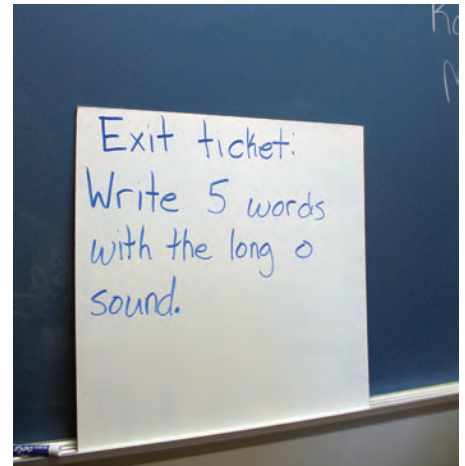 Exit ticket:
Write 5 words
with the long o
sound.